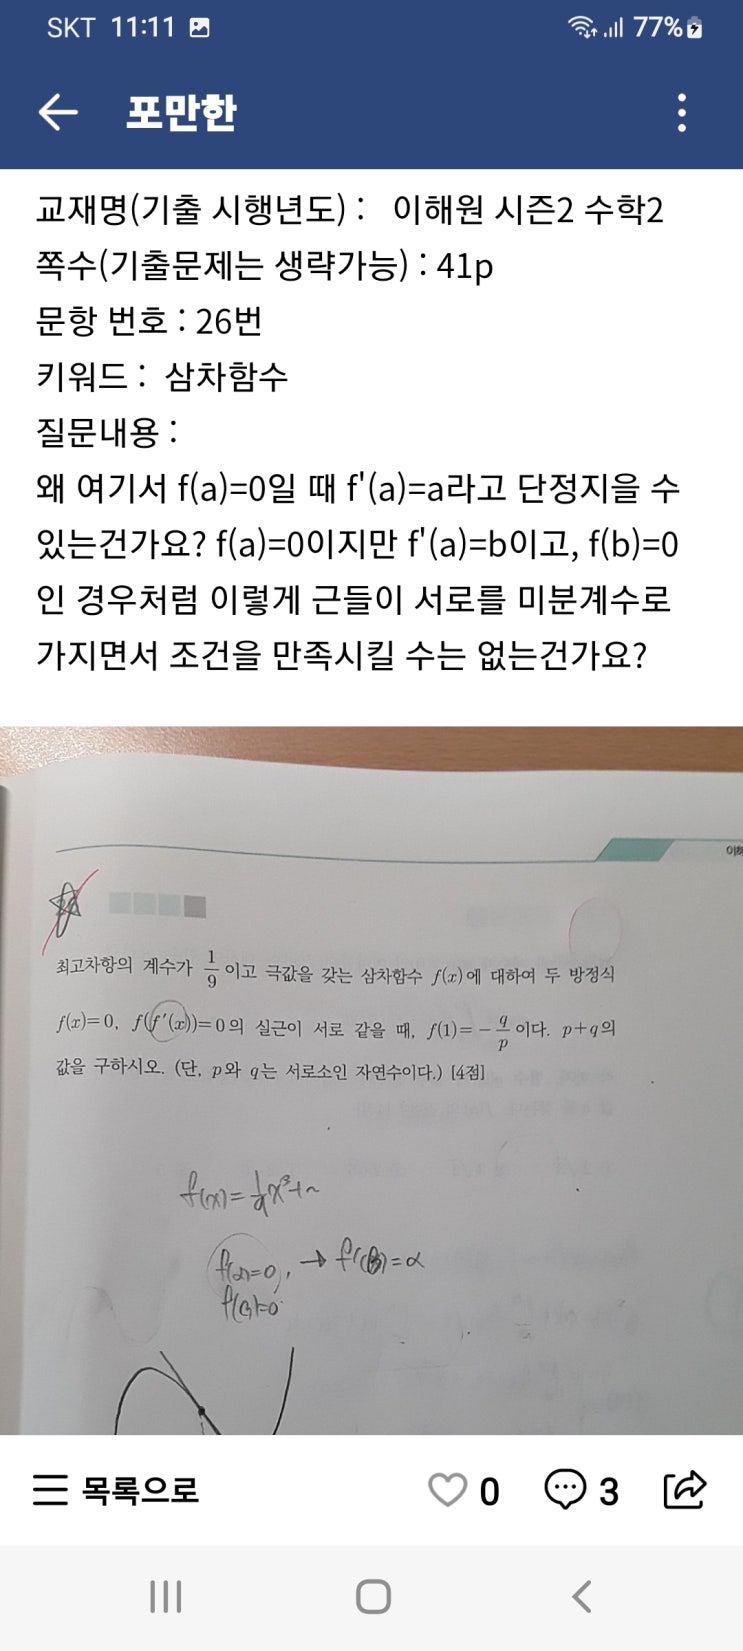 SKT 11:11
77%
포만한
교재명(기출 시행년도) : 이해원 시즌2 수학2
쪽수(기출문제는 생략가능) : 41p
문항 번호 : 26번
키워드 : 삼차함수
질문내용 :
왜 여기서 f(a)=0일 때 f'(a)=a라고 단정지을 수
있는건가요? f(a)=0이지만 f'(a)=b이고, f(b)=0
인 경우처럼 이렇게 근들이 서로를 미분계수로
가지면서 조건을 만족시킬 수는 없는건가요?
최고차항의 계수가 1/9 이고 극값을 갖는 삼차함수 f(x)에 대하여 두 방정식
f(x)=0, f(f'(x))=0의 실근이 서로 같을 때, f(1)=-q/p 이다. p+q의
값을 구하시오. (단, p와 q는 서로소인 자연수이다.) [4점]
f(x)=1/9x³+~
f(α)=0, → f'(β)=α
f(β)=0
목록으로
0
3